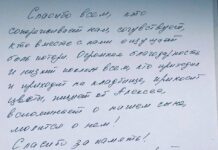 Спасибо всем, кто
сопереживает нам, сочувствует,
кто вместе с нами ощущает
боль потери. Огромная благодарность
и низкий поклон всем, кто приходил
и приходит на кладбище, приносит
цветы, пишет об Алексее,
вспоминает о нашем сыне,
молится о нём!
Спасибо за память!